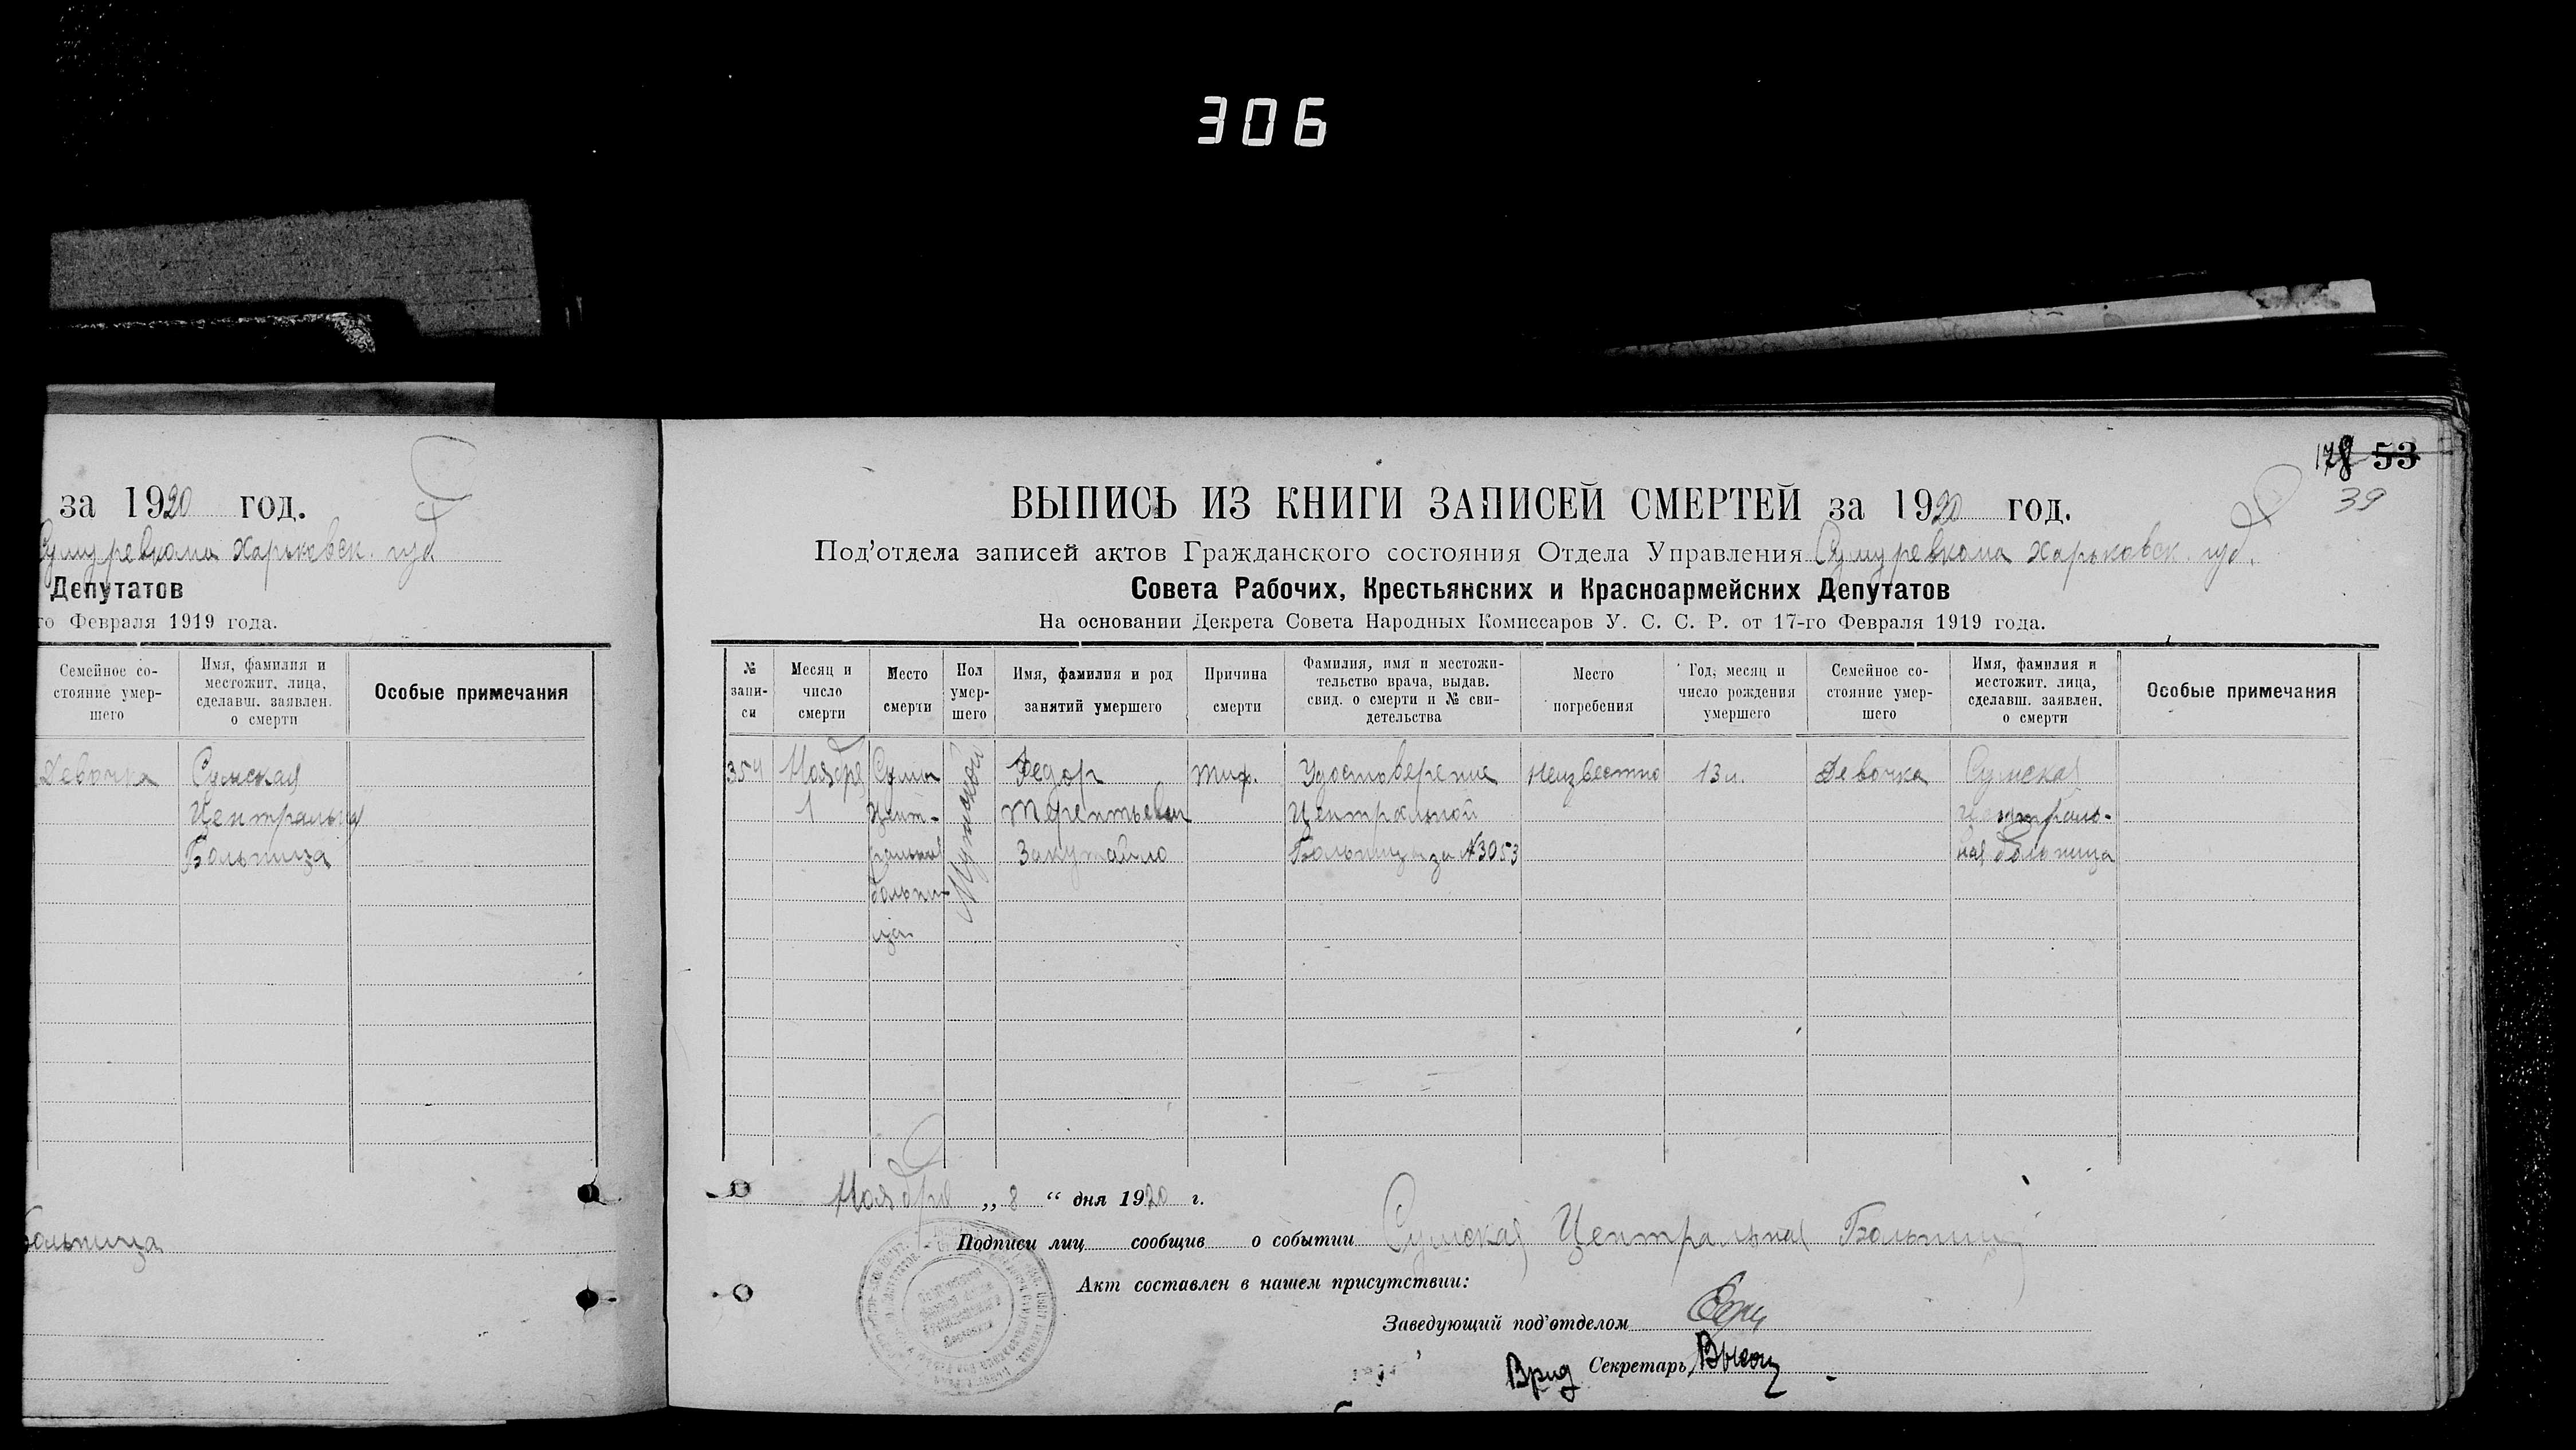 306
за 1920 год.
Сумуревкома Харьковск. губ
Депутатов
го Февраля 1919 года.
Семейное со-
стояние умер-
шего
Имя, фамилия и
местожит. лица,
сделавш. заявлен.
о смерти
Особые примечания
Девочка
Сумская
Центральная
Больница
Больница
178 53
39
ВЫПИСЬ ИЗ КНИГИ ЗАПИСЕЙ СМЕРТЕЙ за 1920 год.
Под'отдела записей актов Гражданского состояния Отдела Управления Сумуревкома Харьковск. губ.
Совета Рабочих, Крестьянских и Красноармейских Депутатов
На основании Декрета Совета Народных Комиссаров У. С. С. Р. от 17-го Февраля 1919 года.
№
запи-
си
Месяц и
число
смерти
Место
смерти
Пол
умер-
шего
Имя, фамилия и род
занятий умершего
Причина
смерти
Фамилия, имя и местожи-
тельство врача, выдав.
свид. о смерти и № сви-
детельства
Место
погребения
Год, месяц и
число рождения
умершего
Семейное со-
стояние умер-
шего
Имя, фамилия и
местожит. лица,
сделавш. заявлен.
о смерти
Особые примечания
354
Ноября
1
Сумы
Цент-
ральная
больни-
ца
Мужской
Федор
Терентьевич
Запутайло
тиф.
Удостоверение
Центральной
Больницы за №3053
Неизвестно
13 л.
Девочка
Сумская
централь-
ная больница
Ноября „ 8 “ дня 1920 г.
Подписи лиц сообщив о событии Сумская Центральная Больница
Акт составлен в нашем присутствии:
Заведующий под'отделом
Врид Секретарь